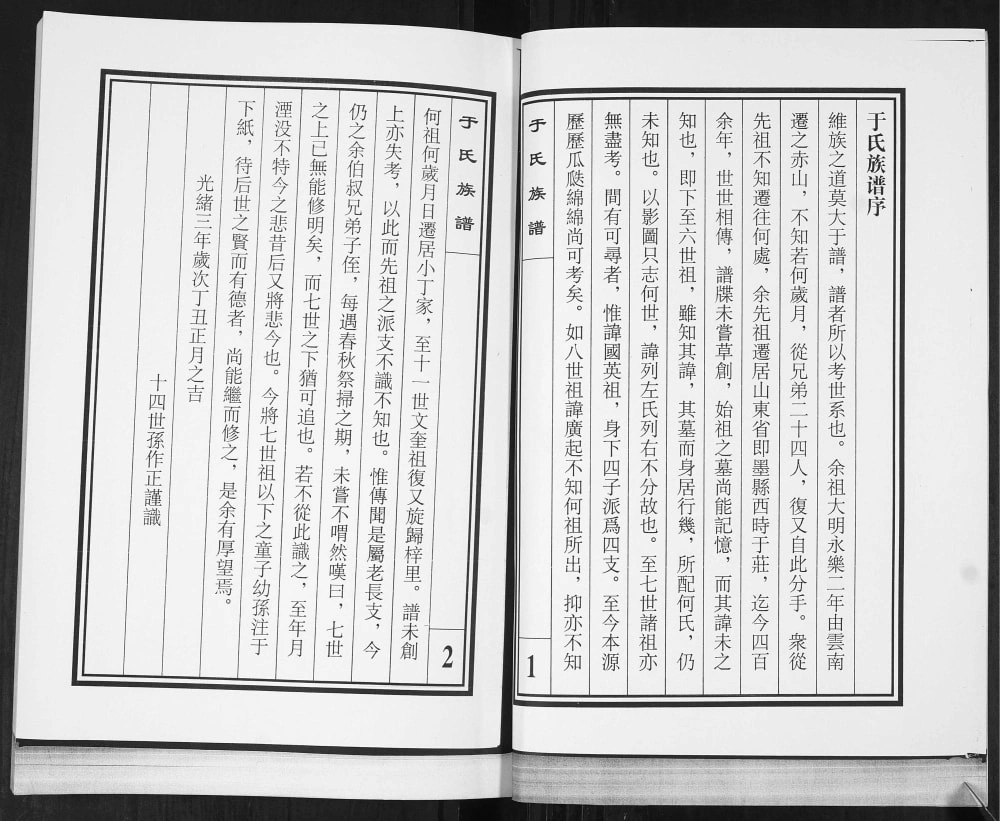 于氏族谱序
維族之道莫大于譜，譜者所以考世系也。余祖大明永樂二年由雲南
遷之赤山，不知若何歲月，從兄弟二十四人，復又自此分手。衆從
先祖不知遷往何處，余先祖遷居山東省即墨縣西時于莊，迄今四百
余年，世世相傳，譜牒未嘗草創，始祖之墓尚能記憶，而其諱未之
知也，即下至六世祖，雖知其諱，其墓而身居行幾，所配何氏，仍
未知也。以影圖只志何世，諱列左氏列右不分故也。至七世諸祖亦
無盡考。間有可尋者，惟諱國英祖，身下四子派爲四支。至今本源
歷歷瓜瓞綿綿尚可考矣。如八世祖諱廣起不知何祖所出，抑亦不知
于氏族譜
1
于氏族譜
2
何祖何歲月日遷居小丁家，至十一世文奎祖復又旋歸梓里。譜未創
上亦失考，以此而先祖之派支不識不知也。惟傳聞是屬老長支，今
仍之余伯叔兄弟子侄，每遇春秋祭掃之期，未嘗不喟然嘆曰，七世
之上已無能修明矣，而七世之下猶可追也。若不從此識之，至年月
湮没不特今之悲昔后又將悲今也。今將七世祖以下之童子幼孫注于
下紙，待后世之賢而有德者，尚能繼而修之，是余有厚望焉。
光緒三年歲次丁丑正月之吉
十四世孫作正謹識